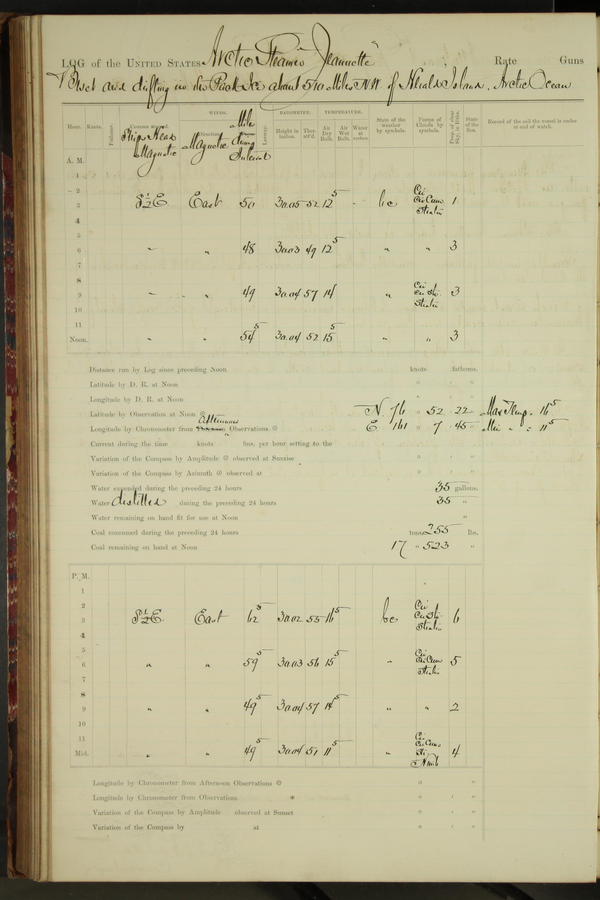 LOG of the UNITED STATES Arctic Steamer "Jeannette" Rate Guns
Beset and drifting in the Pack Ice about 510 Miles N.W. of Herald Island. Arctic Ocean
Hour. Knots. Fathoms. Ship's Head Magnetic WINDS. Direction Magnetic Leeway. BAROMETER. Height in inches. Ther. att'd. TEMPERATURE. Air Dry Bulb. Air Wet Bulb. Water at surface. State of the weather by symbols. Forms of Clouds by symbols. Prop. of clear Sky, in 10ths. State of the Sea. Record of the sail the vessel is under at end of watch.
A. M.
1
2
3 S½E East 50 30.05 52 12⁵ bc Cir Cir Cum Stratus 1
4
5
6 " " 48 30.03 49 12⁵ " " 3
7
8
9 " " 49 30.04 57 14 " Cir Cir St. Stratus 3
10
11
Noon. " " 54⁵ 30.04 52 15⁵ " " 3
Distance run by Log since preceding Noon knots fathoms.
Latitude by D. R. at Noon
Longitude by D. R. at Noon
Latitude by Observation at Noon @ N 76 ° 52 ' 22 " Max Temp. 16⁵
Longitude by Chronometer from Afternoon Observations @ E 161 ° 7 ' 45 " Min " " 11⁵
Current during the time knots fms. per hour setting to the
Variation of the Compass by Amplitude @ observed at Sunrise
Variation of the Compass by Azimuth @ observed at
Water expended during the preceding 24 hours 35 gallons.
Water distilled during the preceding 24 hours 35 "
Water remaining on hand fit for use at Noon "
Coal consumed during the preceding 24 hours tons 255 lbs.
Coal remaining on hand at Noon 17 " 523 "
P. M.
1
2
3 S½E East 62⁵ 30.02 55 16⁵ bc Cir Cir St. Stratus 6
4
5
6 " " 59⁵ 30.03 56 15⁵ " Cir Cir Cum Stratus 5
7
8
9 " " 49⁵ 30.04 57 14⁵ " " 2
10
11
Mid. " " 49⁵ 30.04 51 11⁵ " Cir Cir Cum 4
Longitude by Chronometer from After-noon Observations @
Longitude by Chronometer from Observations
Variation of the Compass by Amplitude observed at Sunset
Variation of the Compass by at